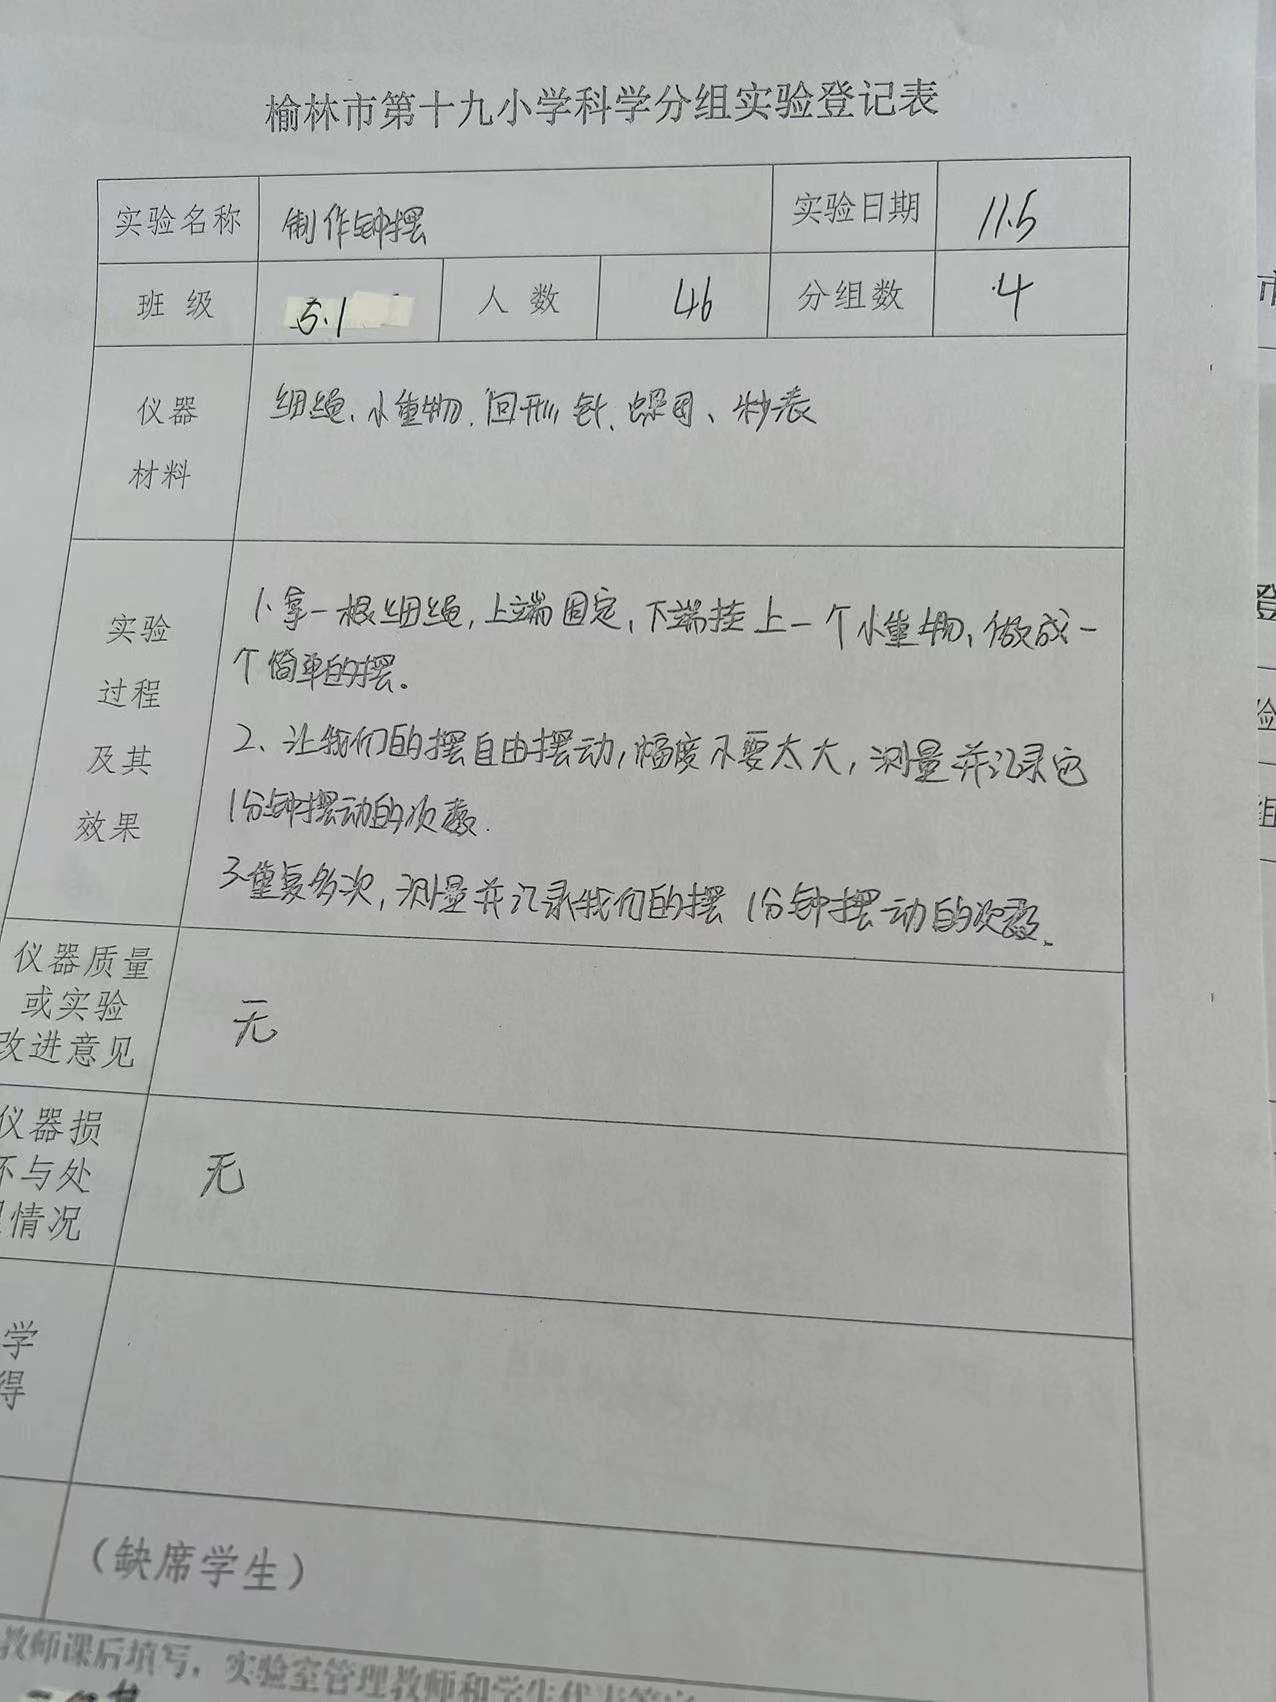 榆林市第十九小学科学分组实验登记表
实验名称 制作钟摆 实验日期 11.5
班 级 5.1 人 数 46 分组数 4
仪器 细绳、小重物、回形针、螺母、秒表
材料
实验 1、拿一根细绳,上端固定,下端挂上一个小重物,做成一
过程 个简单的摆。
及其 2、让我们的摆自由摆动,幅度不要太大,测量并记录它
效果 1分钟摆动的次数.
3.重复多次,测量并记录我们的摆1分钟摆动的次数、
仪器质量
或实验 无
改进意见
仪器损
坏与处 无
情况
学
得
(缺席学生)
教师课后填写,实验室管理教师和学生代表签字
市
登
验
组